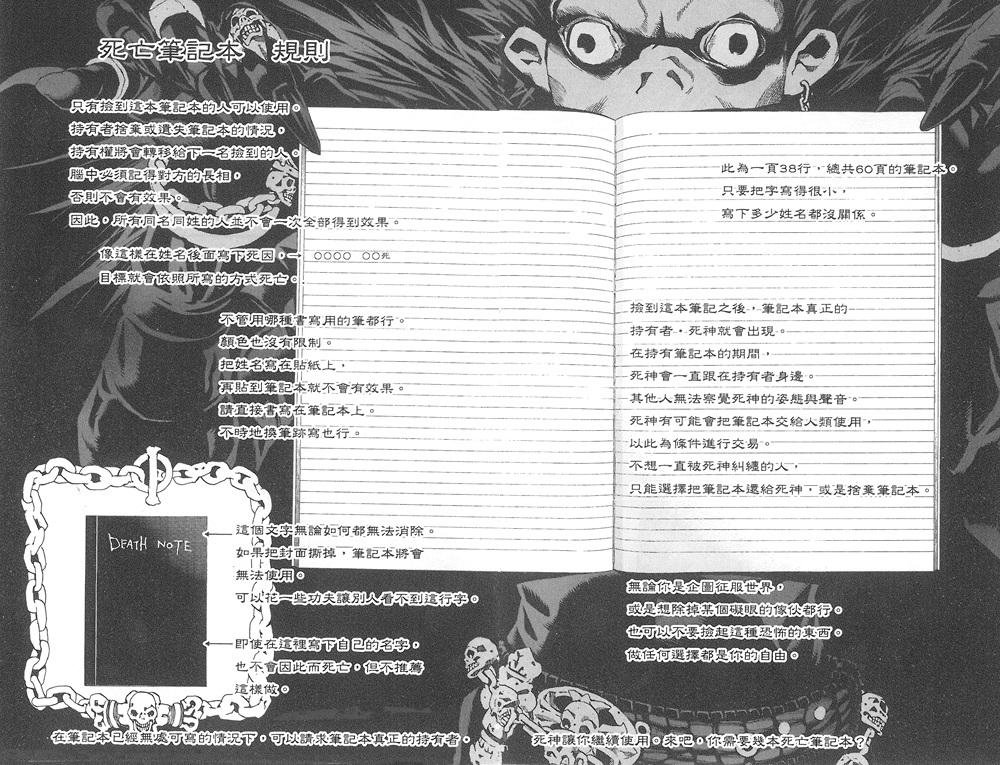 死亡筆記本 規則
只有撿到這本筆記本的人可以使用。
持有者捨棄或遺失筆記本的情況，
持有權將會轉移給下一名撿到的人。
腦中必須記得對方的長相，
否則不會有效果。
因此，所有同名同姓的人並不會一次全部得到效果。
像這樣在姓名後面寫下死因，→ ○○○○ ○○死
目標就會依照所寫的方式死亡。
不管用哪種書寫用的筆都行。
顏色也沒有限制。
把姓名寫在貼紙上，
再貼到筆記本就不會有效果。
請直接書寫在筆記本上。
不時地換筆跡寫也行。
DEATH NOTE
這個文字無論如何都無法消除。
如果把封面撕掉，筆記本將會
無法使用。
可以花一些功夫讓別人看不到這行字。
即使在這裡寫下自己的名字，
也不會因此而死亡，但不推薦
這樣做。
此為一頁38行，總共60頁的筆記本。
只要把字寫得很小，
寫下多少姓名都沒關係。
撿到這本筆記之後，筆記本真正的
持有者・死神就會出現。
在持有筆記本的期間，
死神會一直跟在持有者身邊。
其他人無法察覺死神的姿態與聲音。
死神有可能會把筆記本交給人類使用，
以此為條件進行交易。
不想一直被死神糾纏的人，
只能選擇把筆記本還給死神，或是捨棄筆記本。
無論你是企圖征服世界，
或是想除掉某個礙眼的傢伙都行。
也可以不要撿起這種恐怖的東西。
做任何選擇都是你的自由。
在筆記本已經無處可寫的情況下，可以請求筆記本真正的持有者，死神讓你繼續使用。來吧，你需要幾本死亡筆記本？